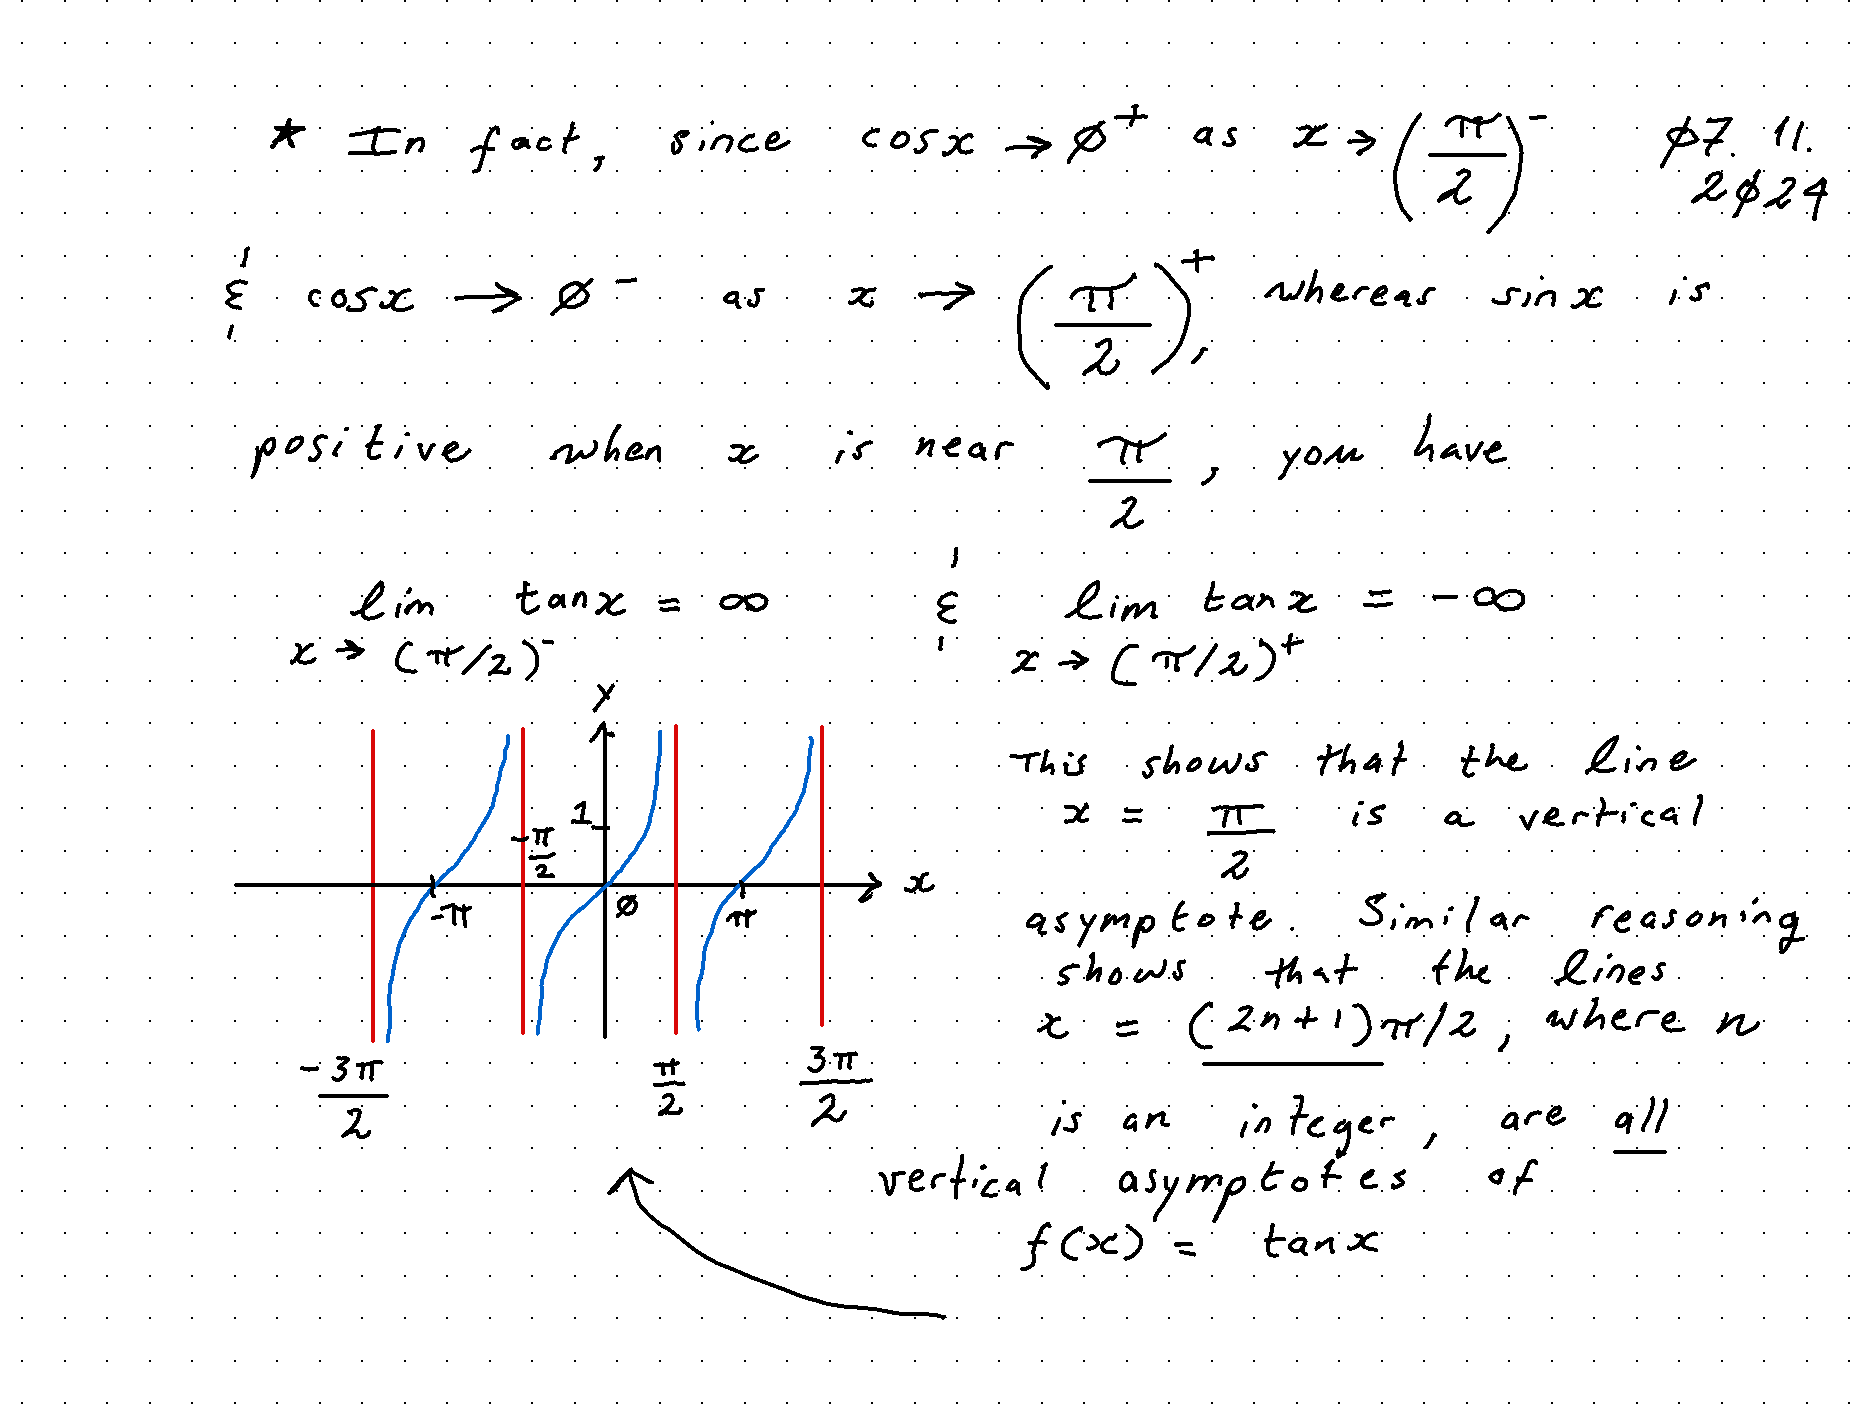 * In fact, since cosx → 0⁺ as x → (π/2)⁻ 07. 11. 2024
& cosx → 0⁻ as x → (π/2)⁺, whereas sinx is
positive when x is near π/2, you have
lim tanx = ∞ & lim tanx = -∞
x → (π/2)⁻ x → (π/2)⁺
y
1
-π/2
x
-π
0
π
-3π/2
π/2
3π/2
This shows that the line
x = π/2 is a vertical
asymptote. Similar reasoning
shows that the lines
x = (2n+1)π/2, where n
is an integer, are all
vertical asymptotes of
f(x) = tanx